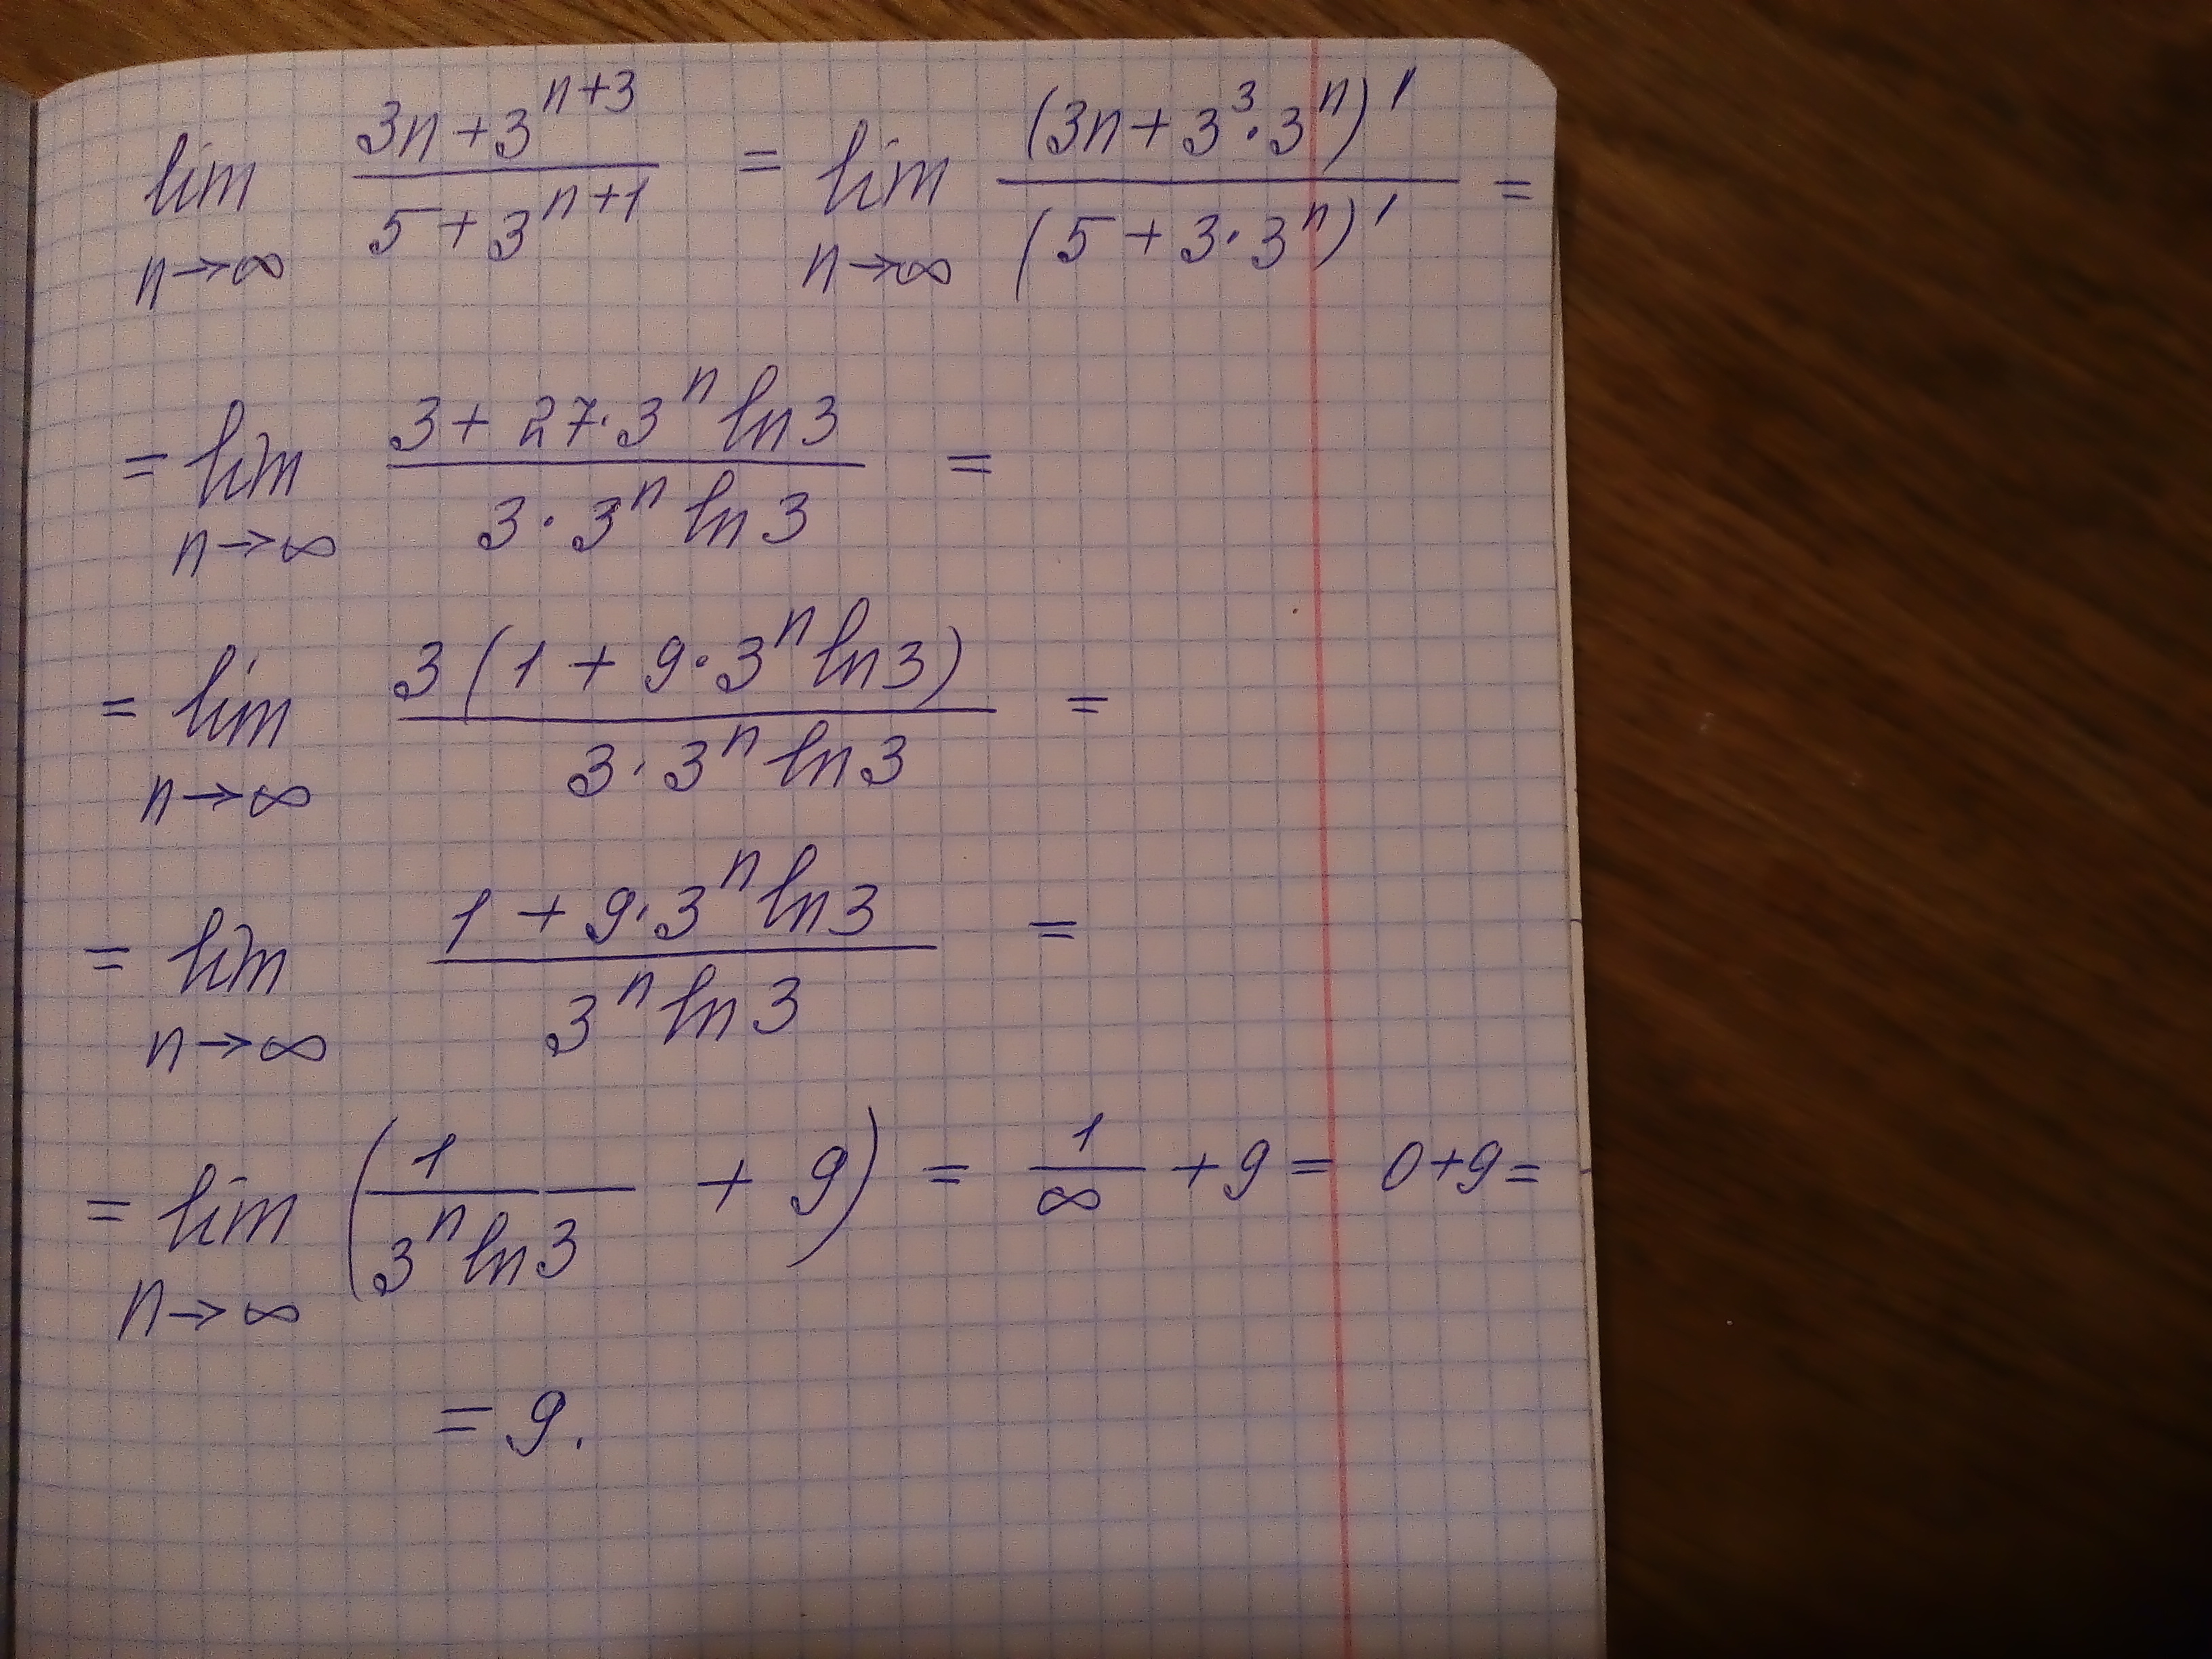 lim n→∞ (3n + 3^(n+3))/(5 + 3^(n+1)) = lim n→∞ (3n + 3^3 · 3^n)'/(5 + 3 · 3^n)' =
= lim n→∞ (3 + 27 · 3^n ln 3)/(3 · 3^n ln 3) =
= lim n→∞ 3(1 + 9 · 3^n ln 3)/(3 · 3^n ln 3) =
= lim n→∞ (1 + 9 · 3^n ln 3)/(3^n ln 3) =
= lim n→∞ (1/(3^n ln 3) + 9) = 1/∞ + 9 = 0 + 9 =
= 9.